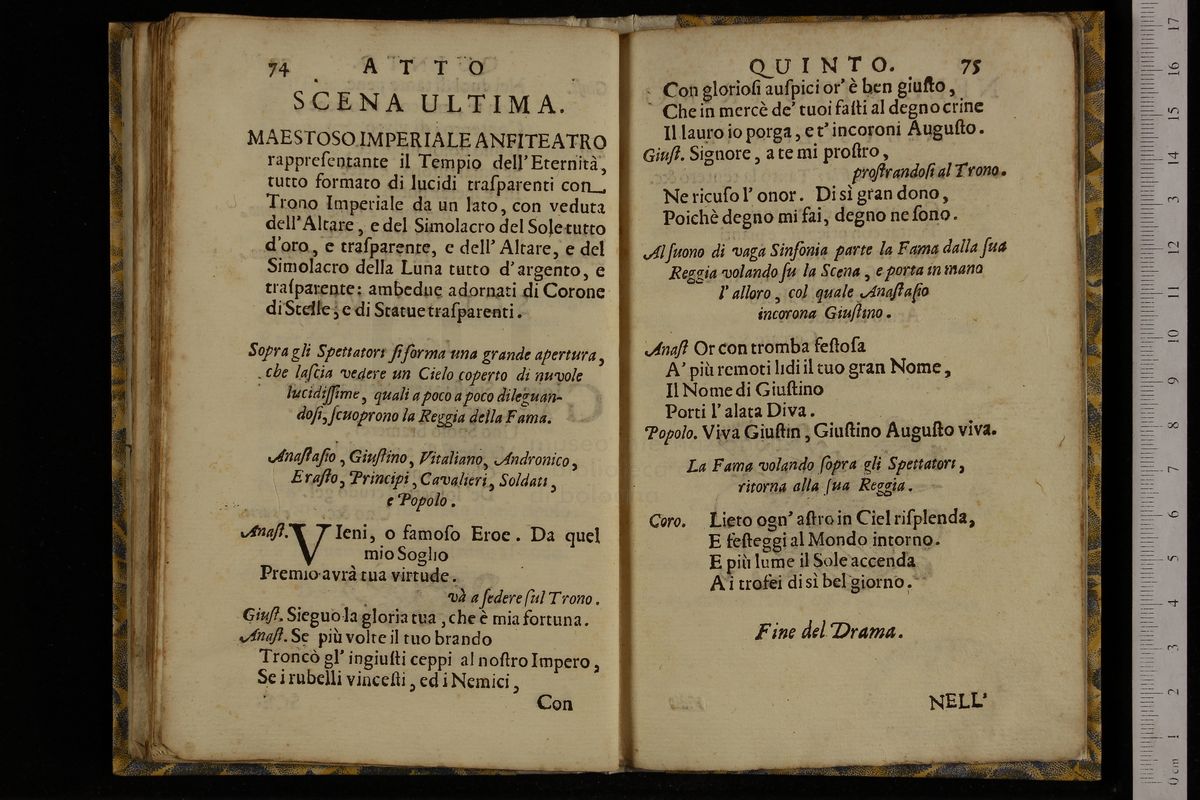 74 ATTO
SCENA ULTIMA.
MAESTOSO IMPERIALE ANFITEATRO
rappreſentante il Tempio dell'Eternità,
tutto formato di lucidi traſparenti con
Trono Imperiale da un lato, con veduta
dell'Altare, e del Simolacro del Sole tutto
d'oro, e traſparente, e dell' Altare, e del
Simolacro della Luna tutto d'argento, e
traſparente: ambedue adornati di Corone
di Stelle, e di Statue traſparenti.
Sopra gli Spettatori ſi forma una grande apertura,
che laſcia vedere un Cielo coperto di nuvole
lucidiſſime, quali a poco a poco dileguan-
doſi, ſcuoprono la Reggia della Fama.
Anaſtaſio, Giuſtino, Vitaliano, Andronico,
Eraſto, Principi, Cavalieri, Soldati,
e Popolo.
Anaſt. VIeni, o famoſo Eroe. Da quel
mio Soglio
Premio avrà tua virtude.
và a ſedere ſul Trono.
Giuſt. Sieguo la gloria tua, che è mia fortuna.
Anaſt. Se più volte il tuo brando
Troncò gl' ingiuſti ceppi al noſtro Impero,
Se i rubelli vinceſti, ed i Nemici,
Con
QUINTO. 75
Con glorioſi auſpici or' è ben giuſto,
Che in mercè de' tuoi faſti al degno crine
Il lauro io porga, e t' incoroni Auguſto.
Giuſt. Signore, a te mi proſtro,
proſtrandoſi al Trono.
Ne ricuſo l' onor. Di sì gran dono,
Poichè degno mi fai, degno ne ſono.
Al ſuono di vaga Sinfonia parte la Fama dalla ſua
Reggia volando ſu la Scena, e porta in mano
l' alloro, col quale Anaſtaſio
incorona Giuſtino.
Anaſt Or con tromba feſtoſa
A' più remoti lidi il tuo gran Nome,
Il Nome di Giuſtino
Porti l' alata Diva.
Popolo. Viva Giuſtin, Giuſtino Auguſto viva.
La Fama volando ſopra gli Spettatori,
ritorna alla ſua Reggia.
Coro. Lieto ogn' aſtro in Ciel riſplenda,
E feſteggi al Mondo intorno.
E più lume il Sole accenda
A i trofei di sì bel giorno.
Fine del Drama.
NELL'
0 cm 1 2 3 4 5 6 7 8 9 10 11 12 13 14 15 16 17